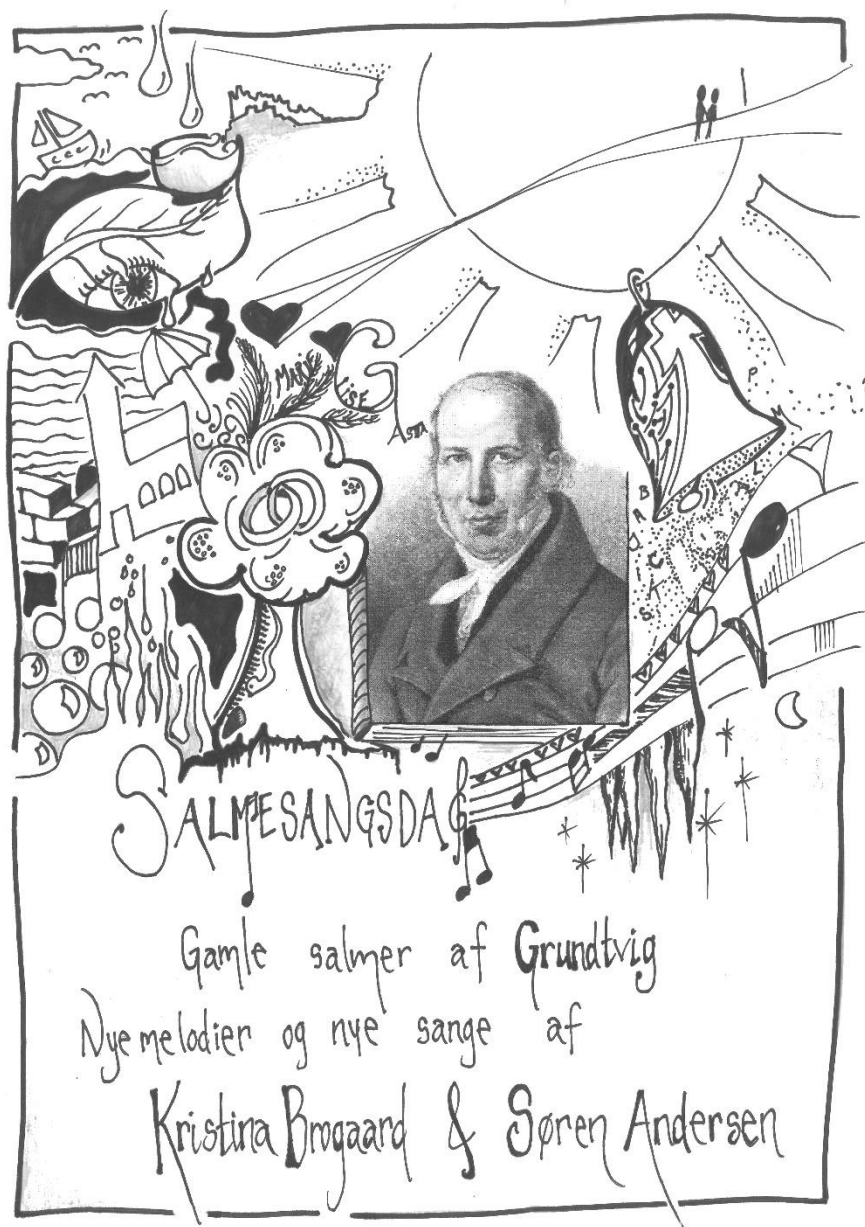 MARIE
LISE
G
Asta
SALMESANGSDAG
Gamle salmer af Grundtvig
Nye melodier og nye sange af
Kristina Brogaard & Søren Andersen